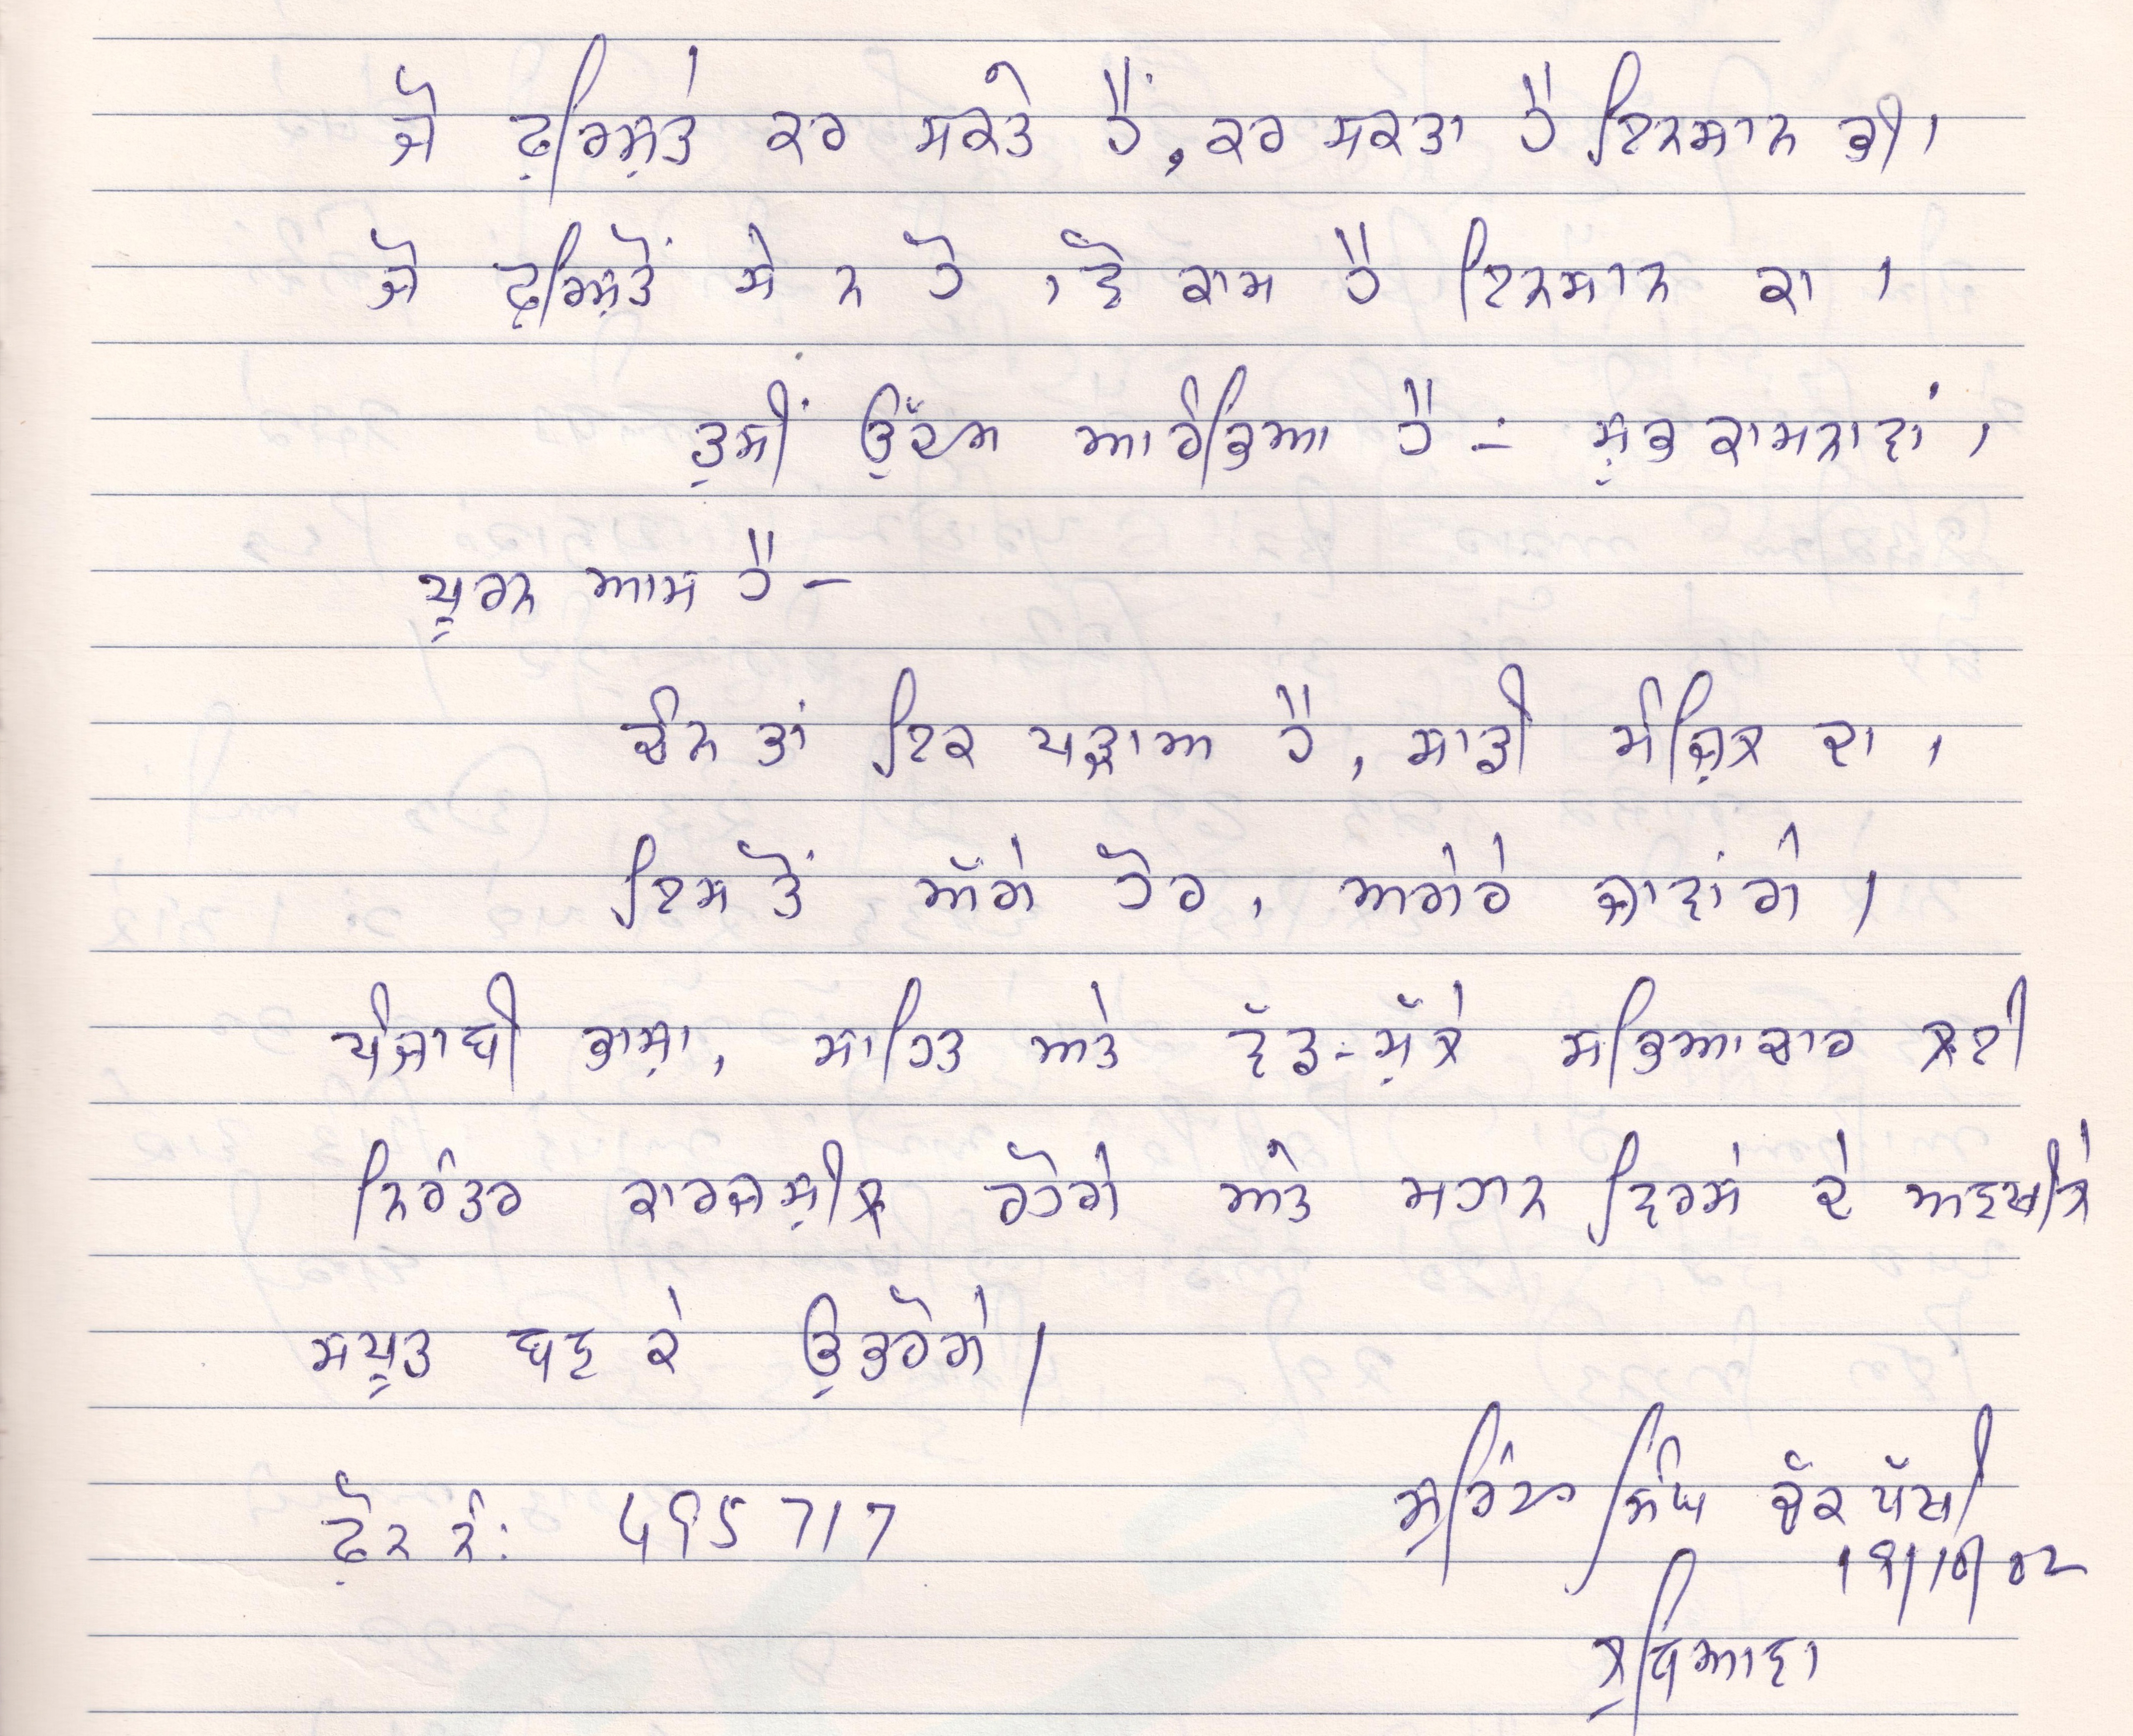 ਜੋ ਫ਼ਰਿਸ਼ਤੇ ਕਰ ਸਕਤੇ ਹੈਂ, ਕਰ ਸਕਤਾ ਹੈ ਇਨਸਾਨ ਭੀ।
ਜੋ ਫ਼ਰਿਸ਼ਤੋਂ ਸੇ ਨ ਹੋ, ਵੋ ਕਾਮ ਹੈ ਇਨਸਾਨ ਕਾ।
ਤੁਸੀਂ ਉੱਦਮ ਆਰੰਭਿਆ ਹੈ – ਸ਼ੁਭ ਕਾਮਨਾਵਾਂ।
ਪੂਰਨ ਆਸ ਹੈ –
ਚੰਨ ਤਾਂ ਇਕ ਪੜਾਅ ਹੈ, ਸਾਡੀ ਮੰਜ਼ਿਲ ਦਾ,
ਇਸ ਤੋਂ ਅੱਗੇ ਹੋਰ, ਅਗੇਰੇ ਜਾਵਾਂਗੇ।
ਪੰਜਾਬੀ ਭਾਸ਼ਾ, ਸਾਹਿਤ ਅਤੇ ਵੱਡ-ਮੁੱਲੇ ਸਭਿਆਚਾਰ ਲਈ
ਨਿਰੰਤਰ ਕਾਰਜਸ਼ੀਲ ਰਹੋਗੇ ਅਤੇ ਮਹਾਨ ਵਿਰਸੇ ਦੇ ਅਣਖੀਲੇ
ਸਪੂਤ ਬਣ ਕੇ ਉਭਰੋਗੇ।
ਫ਼ੋਨ ਨੰ: 495717
ਸਿੰਘ ਚੱਕ ਪੱਖੀ
19/10/02
ਲੁਧਿਆਣਾ